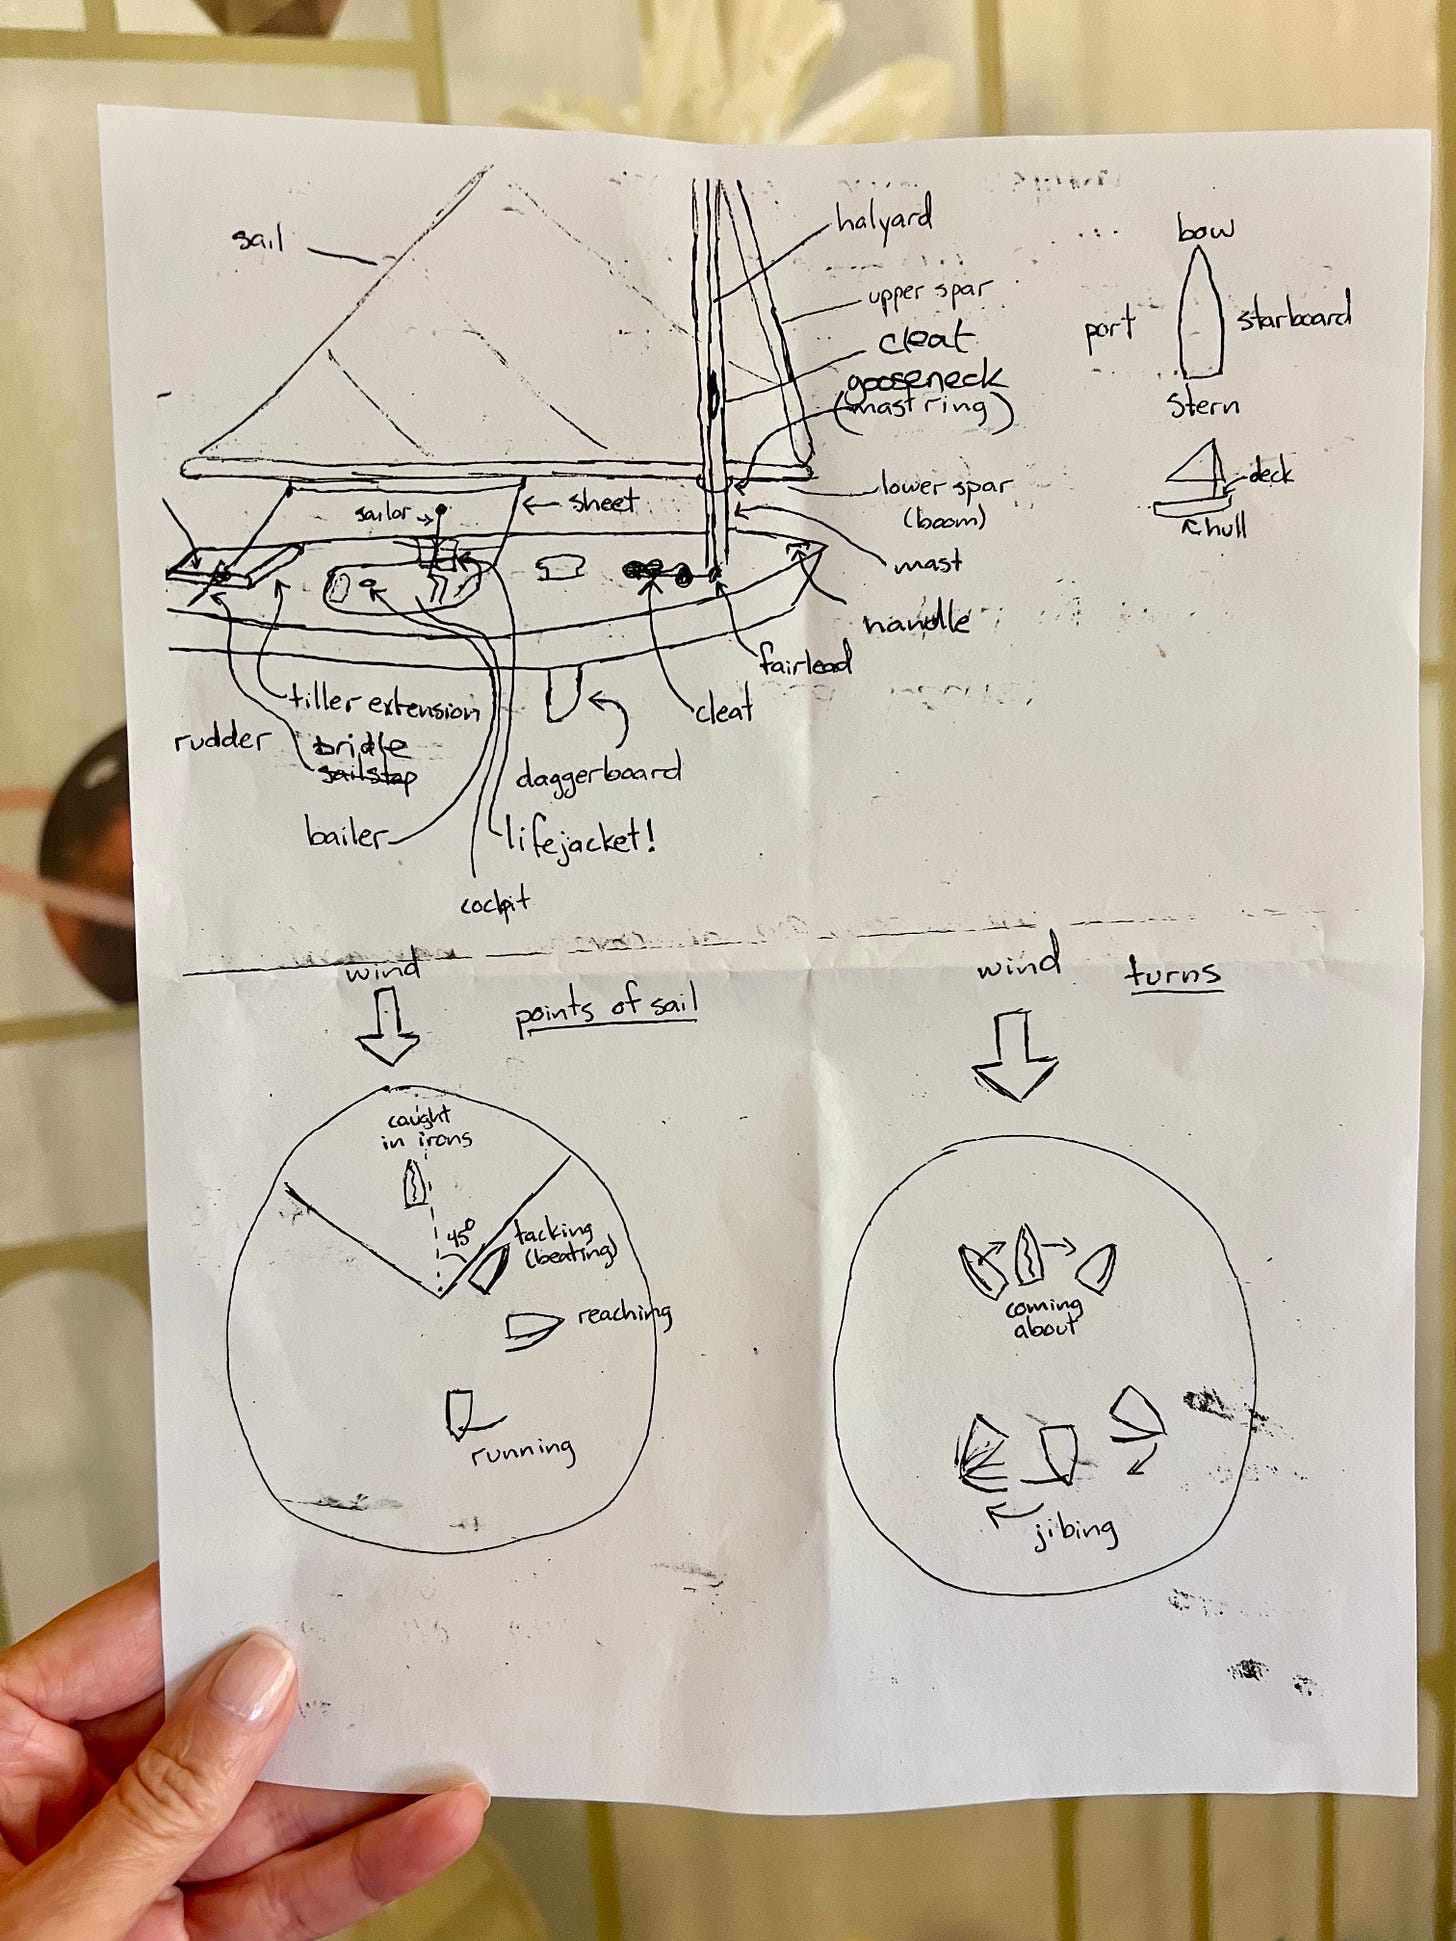 sail
halyard
upper spar
cleat
gooseneck
(mast ring)
lower spar
(boom)
sheet
sailor
mast
handle
fairlead
cleat
tiller extension
rudder
bridle
sailstop
daggerboard
bailer
lifejacket!
cockpit
bow
port
starboard
stern
deck
hull
wind
points of sail
caught
in irons
45°
tacking
(beating)
reaching
running
wind
turns
coming
about
jibing